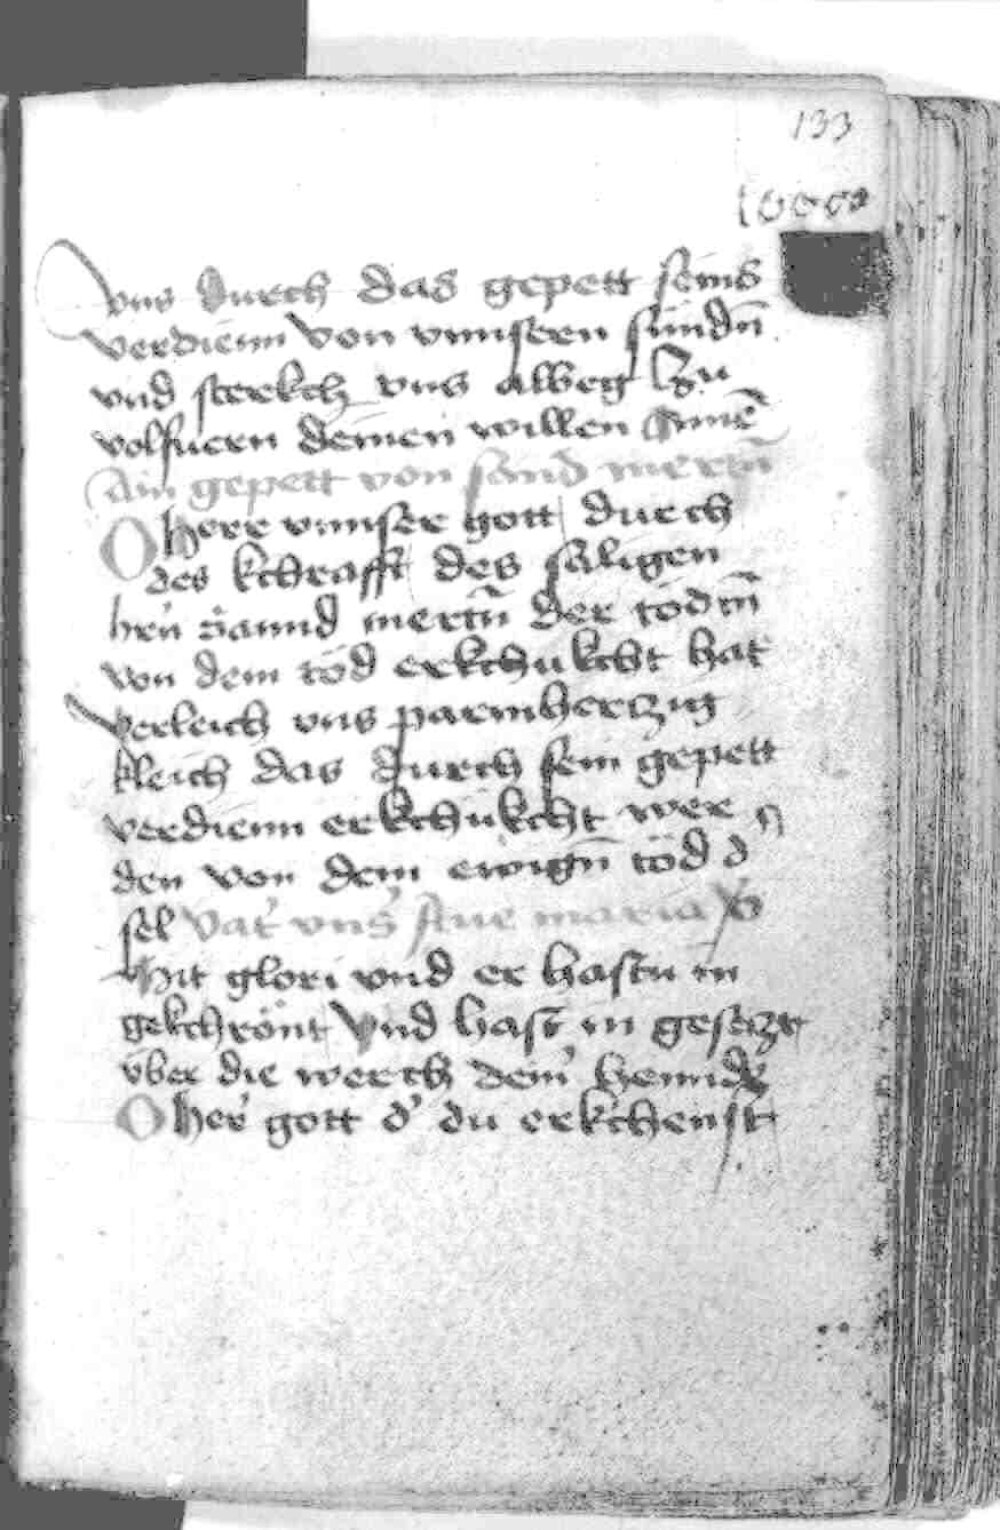 133
vns durch das gepett seins
verdienn von vnnsern sündn̄
vnd sterkch vns albeg Czu
volfuern deinen willen Amē
Ain gepett von sand mertn̄
O herr vnnser gott durch
des kchrafft des säligen
hrn̄ sannd mertn̄ der tödm̄
von dem töd erkchukcht hat
verleich vns parmhertzig
kleich das durch sein gepett
verdienn erkchukcht wer
den von dem ewign̄ töd d'
sel Vat' vns' Aue maria
Mit glori vnd er hastu in
gekchrönt Vnd hast in gesetzt
vber die werch dein' henndt
O her' gott d' du erkchenst